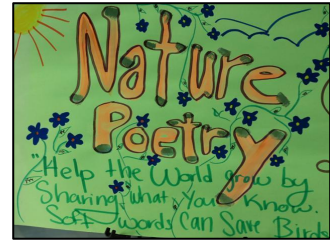 Nature
Poetry
"Help the World grow by
Sharing what You Know.
Soft words Can Save Birds